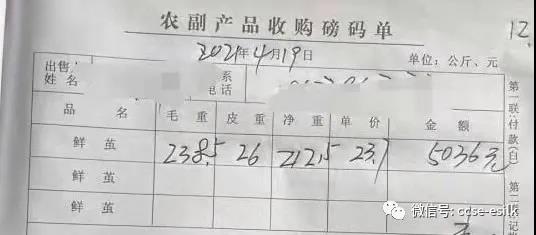 农副产品收购磅码单
12
2021年4月19日 单位：公斤、元
出售
姓名 系
电话
品名 毛重 皮重 净重 单价 金额
鲜茧 238.5 26 212.5 23.7 5036元
鲜茧
鲜茧
第一联:付款(白)
第二联记
微信号: cdse-esilk